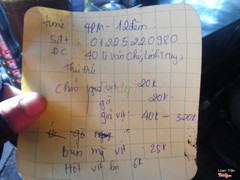 time 4PM - 12 đêm
Sđt: 01205220980
ĐC 40 Lê Văn Chí, Linh Trung,
Thủ Đức
Cháo 20k
gà 20k
gỏi vịt: 40k - 320k
bún vịt 25k
Hột vịt lộn 6k